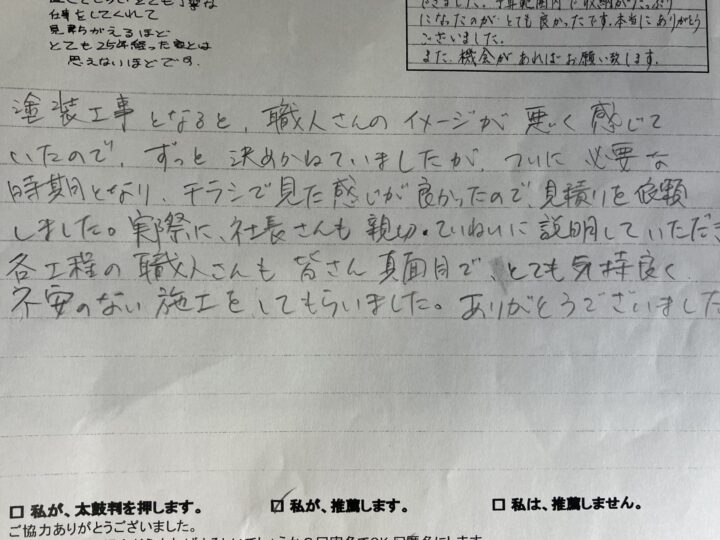 とても丁寧な
仕事をしてくれて
見ちがえるほど
とても25年経った家とは
思えないほどです。
できました。予算範囲内で収納がたっぷり
になったのがとても良かったです。本当にありがとう
ございました。
また、機会があればお願い致します。
塗装工事となると、職人さんのイメージが悪く感じて
いたので、ずっと決めかねていましたが、ついに必要な
時期となり、チラシで見た感じが良かったので、見積りを依頼
しました。実際に、社長さんも親切・ていねいに説明していただき
各工程の職人さんも皆さん真面目で、とても気持良く
不安のない施工をしてもらいました。ありがとうございました
□ 私が、太鼓判を押します。 ☑ 私が、推薦します。 □ 私は、推薦しません。
ご協力ありがとうございました。